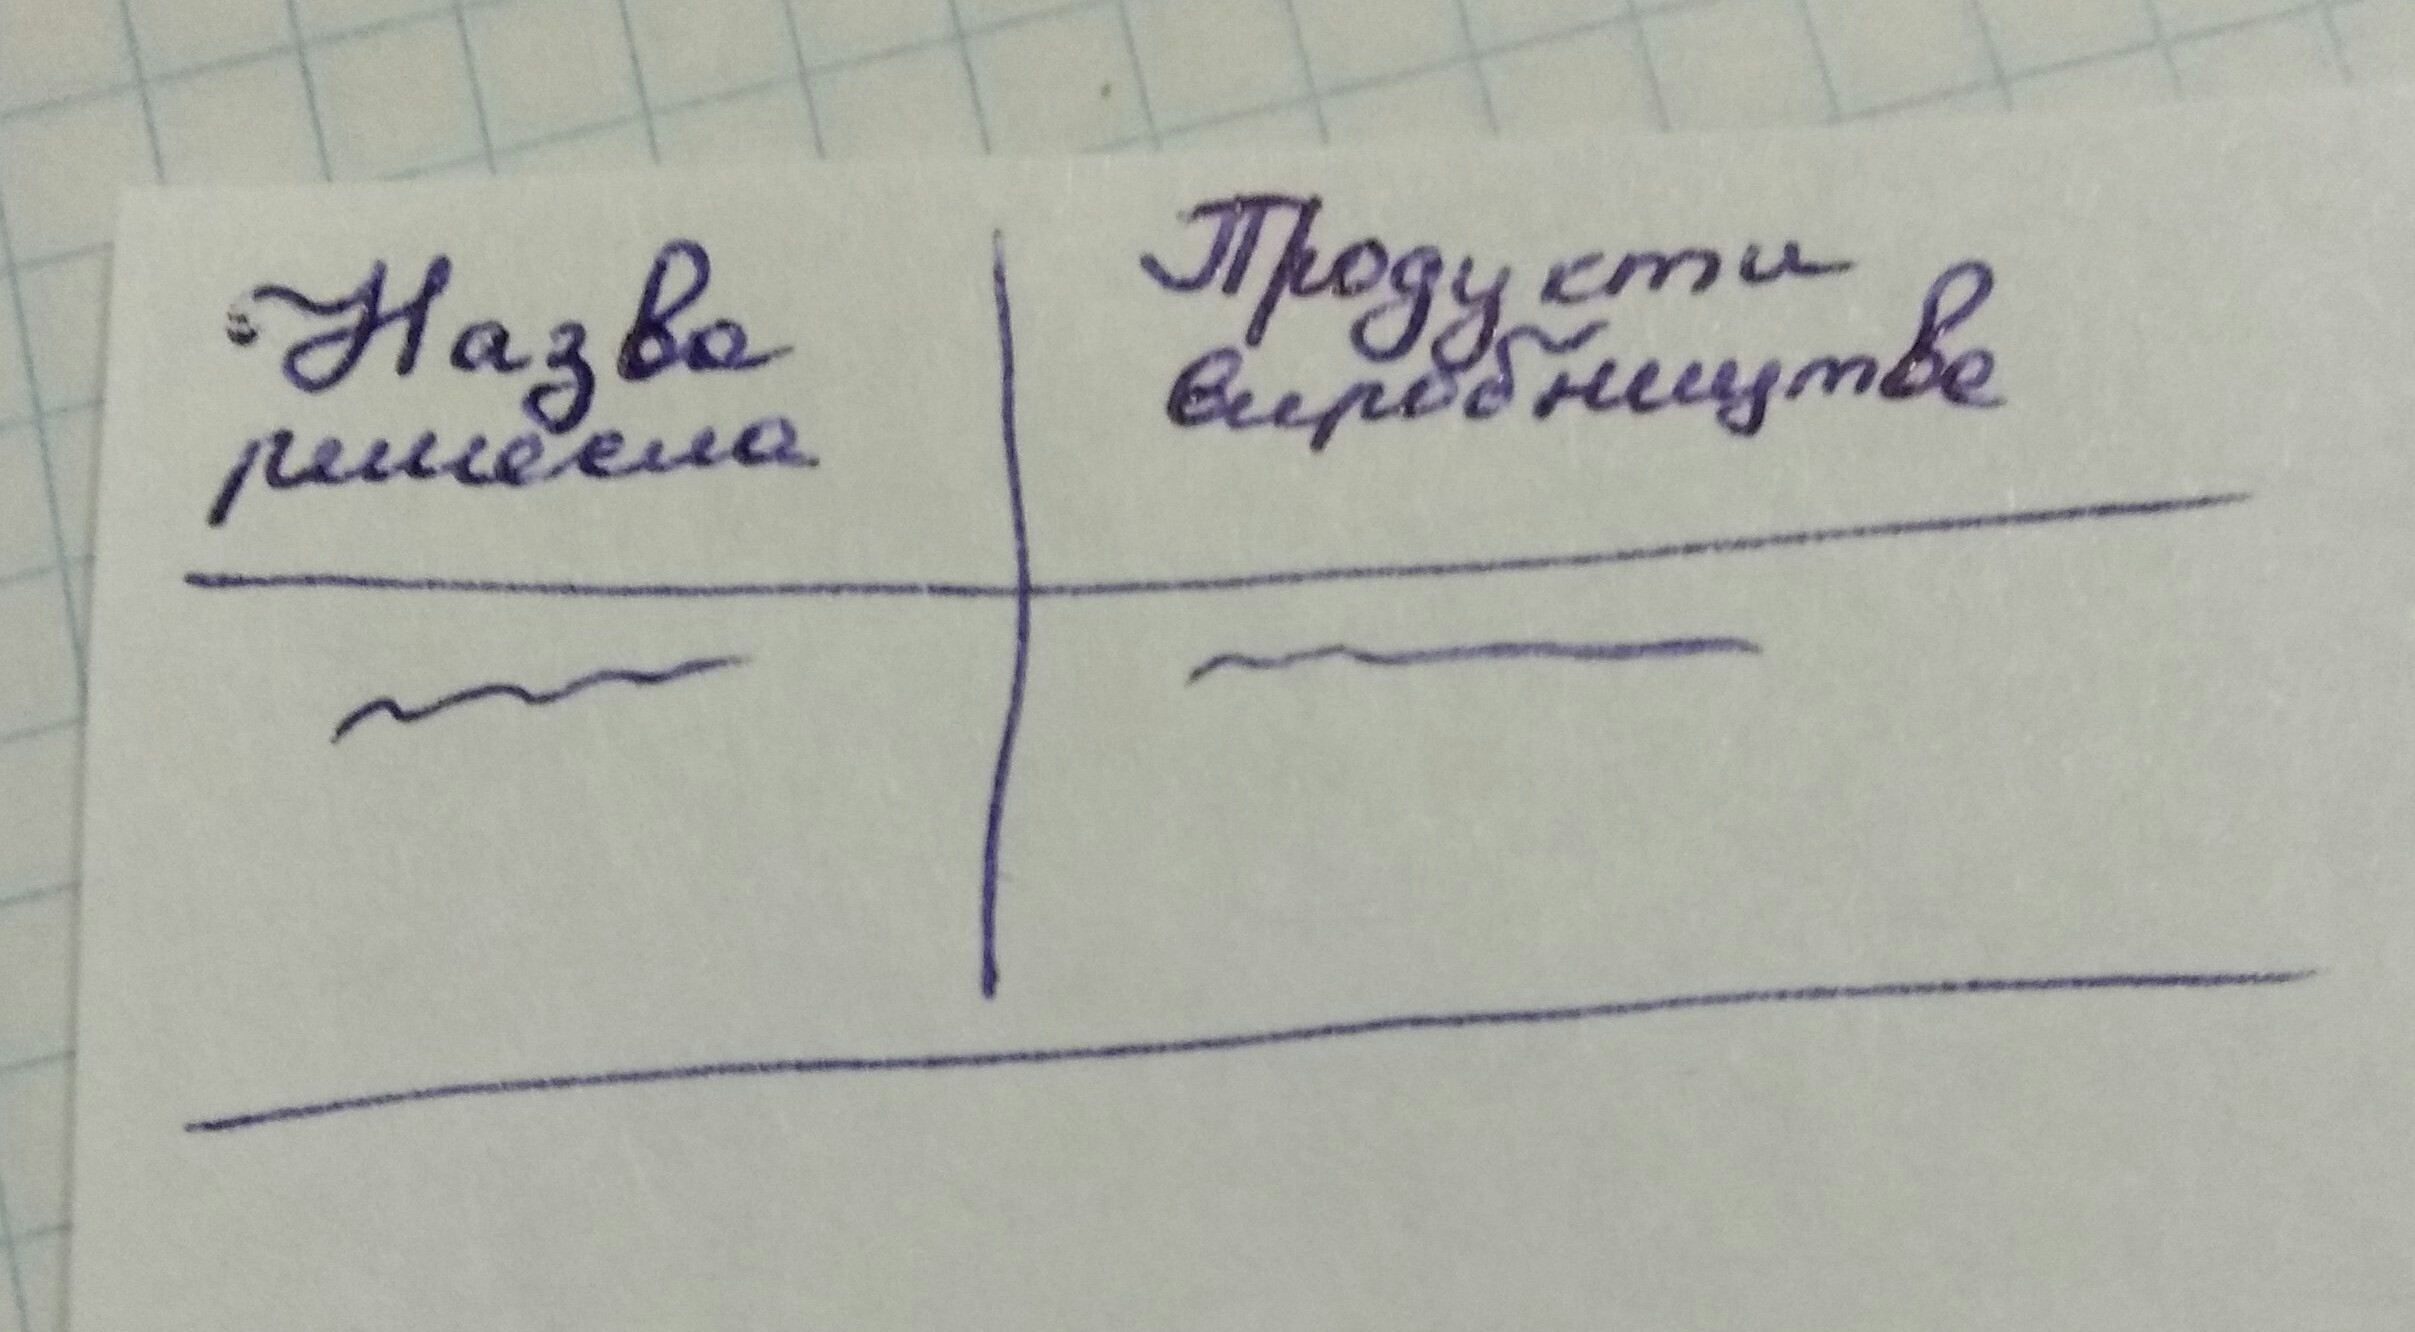 Назва
ремесла
Продукти
виробництва